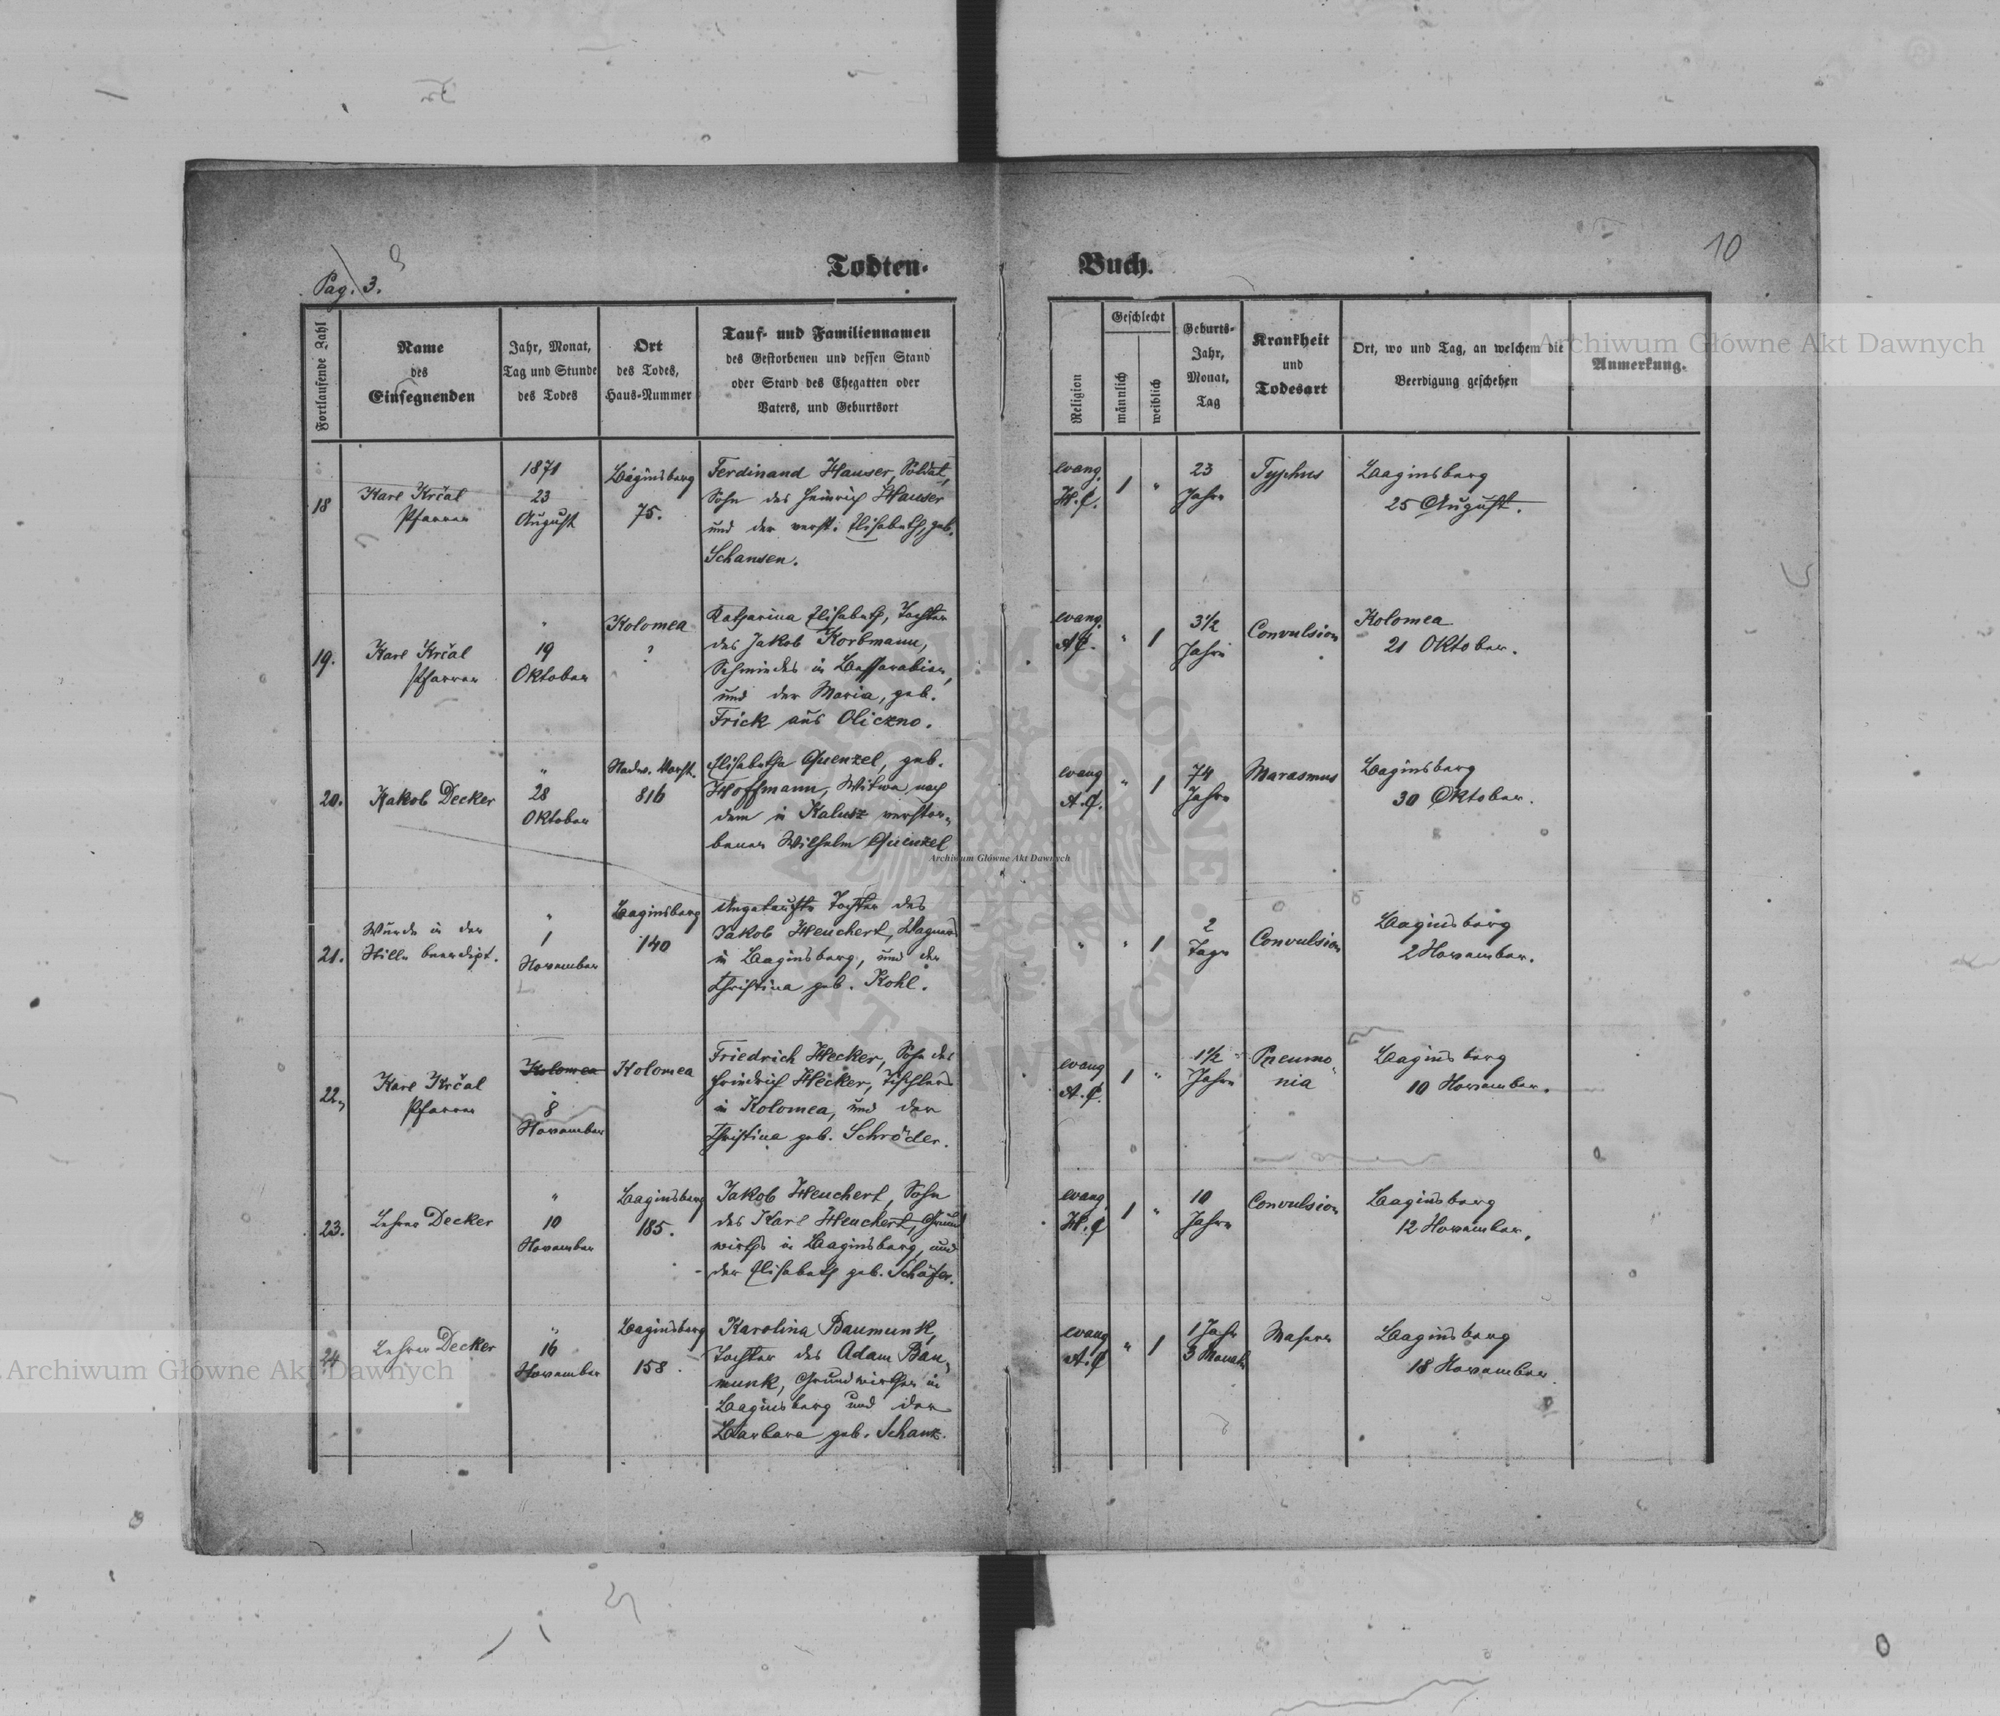 Pag. 3.
10
Todten-
Buch.
Fortlaufende Zahl
Name
des
Einsegnenden
Jahr, Monat,
Tag und Stunde
des Todes
Ort
des Todes,
Haus-Nummer
Tauf- und Familiennamen
des Gestorbenen und dessen Stand
oder Stand des Ehegatten oder
Vaters, und Geburtsort
Religion
Geschlecht
männlich
weiblich
Geburts-
Jahr,
Monat,
Tag
Krankheit
und
Todesart
Ort, wo und Tag, an welchem die
Beerdigung geschehen
Anmerkung.
18
Karl Krčal
Pfarrer
1871
23
August
Baginsberg
75.
Ferdinand Hauser, Soldat,
Sohn des Heinrich Hauser
und der verst. Elisabeth, geb.
Schansen.
evang.
H.C.
1 "
23
Jahre
Typhus
Baginsberg
25 August.
19.
Karl Krčal
Pfarrer
"
19
Oktober
Kolomea
?
Katharina Elisabeth, Tochter
des Jakob Korbmann,
Schmiedes in Bessarabien,
und der Maria, geb.
Frick aus Oliczno.
evang.
A.C.
" 1
3½
Jahre
Convulsion
Kolomea
21 Oktober.
20.
Jakob Decker
"
28
Oktober
Nadw. Vorst.
816
Elisabetha Quenzel, geb.
Hoffmann, Witwe nach
dem in Kalusz verstor-
benen Wilhelm Quenzel
evang
A.C.
" 1
74
Jahre
Marasmus
Baginsberg
30 Oktober.
21.
Wurde in der
Stille beerdigt.
"
1
November
Baginsberg
140
Ungetaufte Tochter des
Jakob Heuchert, Wagners
in Baginsberg, und der
Christina geb. Kohl.
" " 1
2
Tage
Convulsion
Baginsberg
2 November.
22.
Karl Krčal
Pfarrer
Kolomea
"
8
November
Kolomea
Friedrich Hecker, Sohn des
Friedrich Hecker, Tischlers
in Kolomea, und der
Christina geb. Schröder.
evang
A.C.
1 "
1½
Jahre
Pneumo-
nia
Baginsberg
10 November.
23.
Lehrer Decker
"
10
November
Baginsberg
185.
Jakob Heuchert, Sohn
des Karl Heuchert, Grund
wirths in Baginsberg, und
der Elisabeth geb. Schäfer.
evang.
H.C
1 "
10
Jahre
Convulsion
Baginsberg
12 November.
24
Lehrer Decker
"
16
November
Baginsberg
158.
Karolina Baumunk,
Tochter des Adam Bau-
munk, Grundwirthes in
Baginsberg und der
Barbara geb. Schank.
evang
A.C
" 1
1 Jahr
3 Monate
Masern
Baginsberg
18 November.
Archiwum Główne Akt Dawnych
Archiwum Główne Akt Dawnych
Archiwum Główne Akt Dawnych